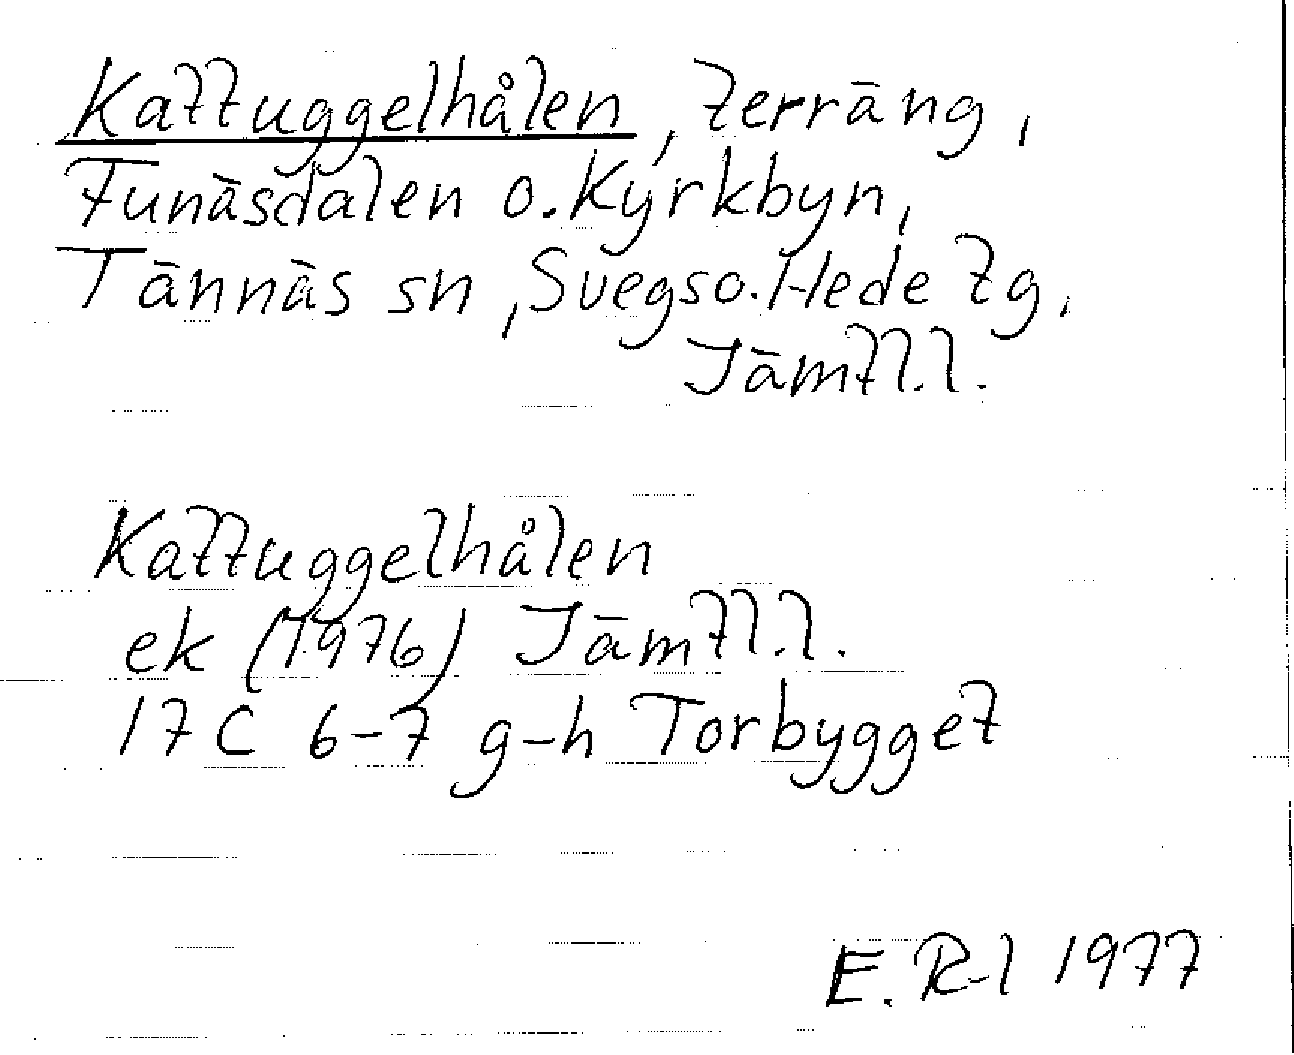 Kattuggelhålen, terräng,
Funäsdalen o. Kyrkbyn,
Tännäs sn, Svegs o. Hede tg,
Jämtl.l.
Kattuggelhålen
ek (1976) Jämtl.l.
17 C 6-7 g-h Torbygget
E. R-l 1977